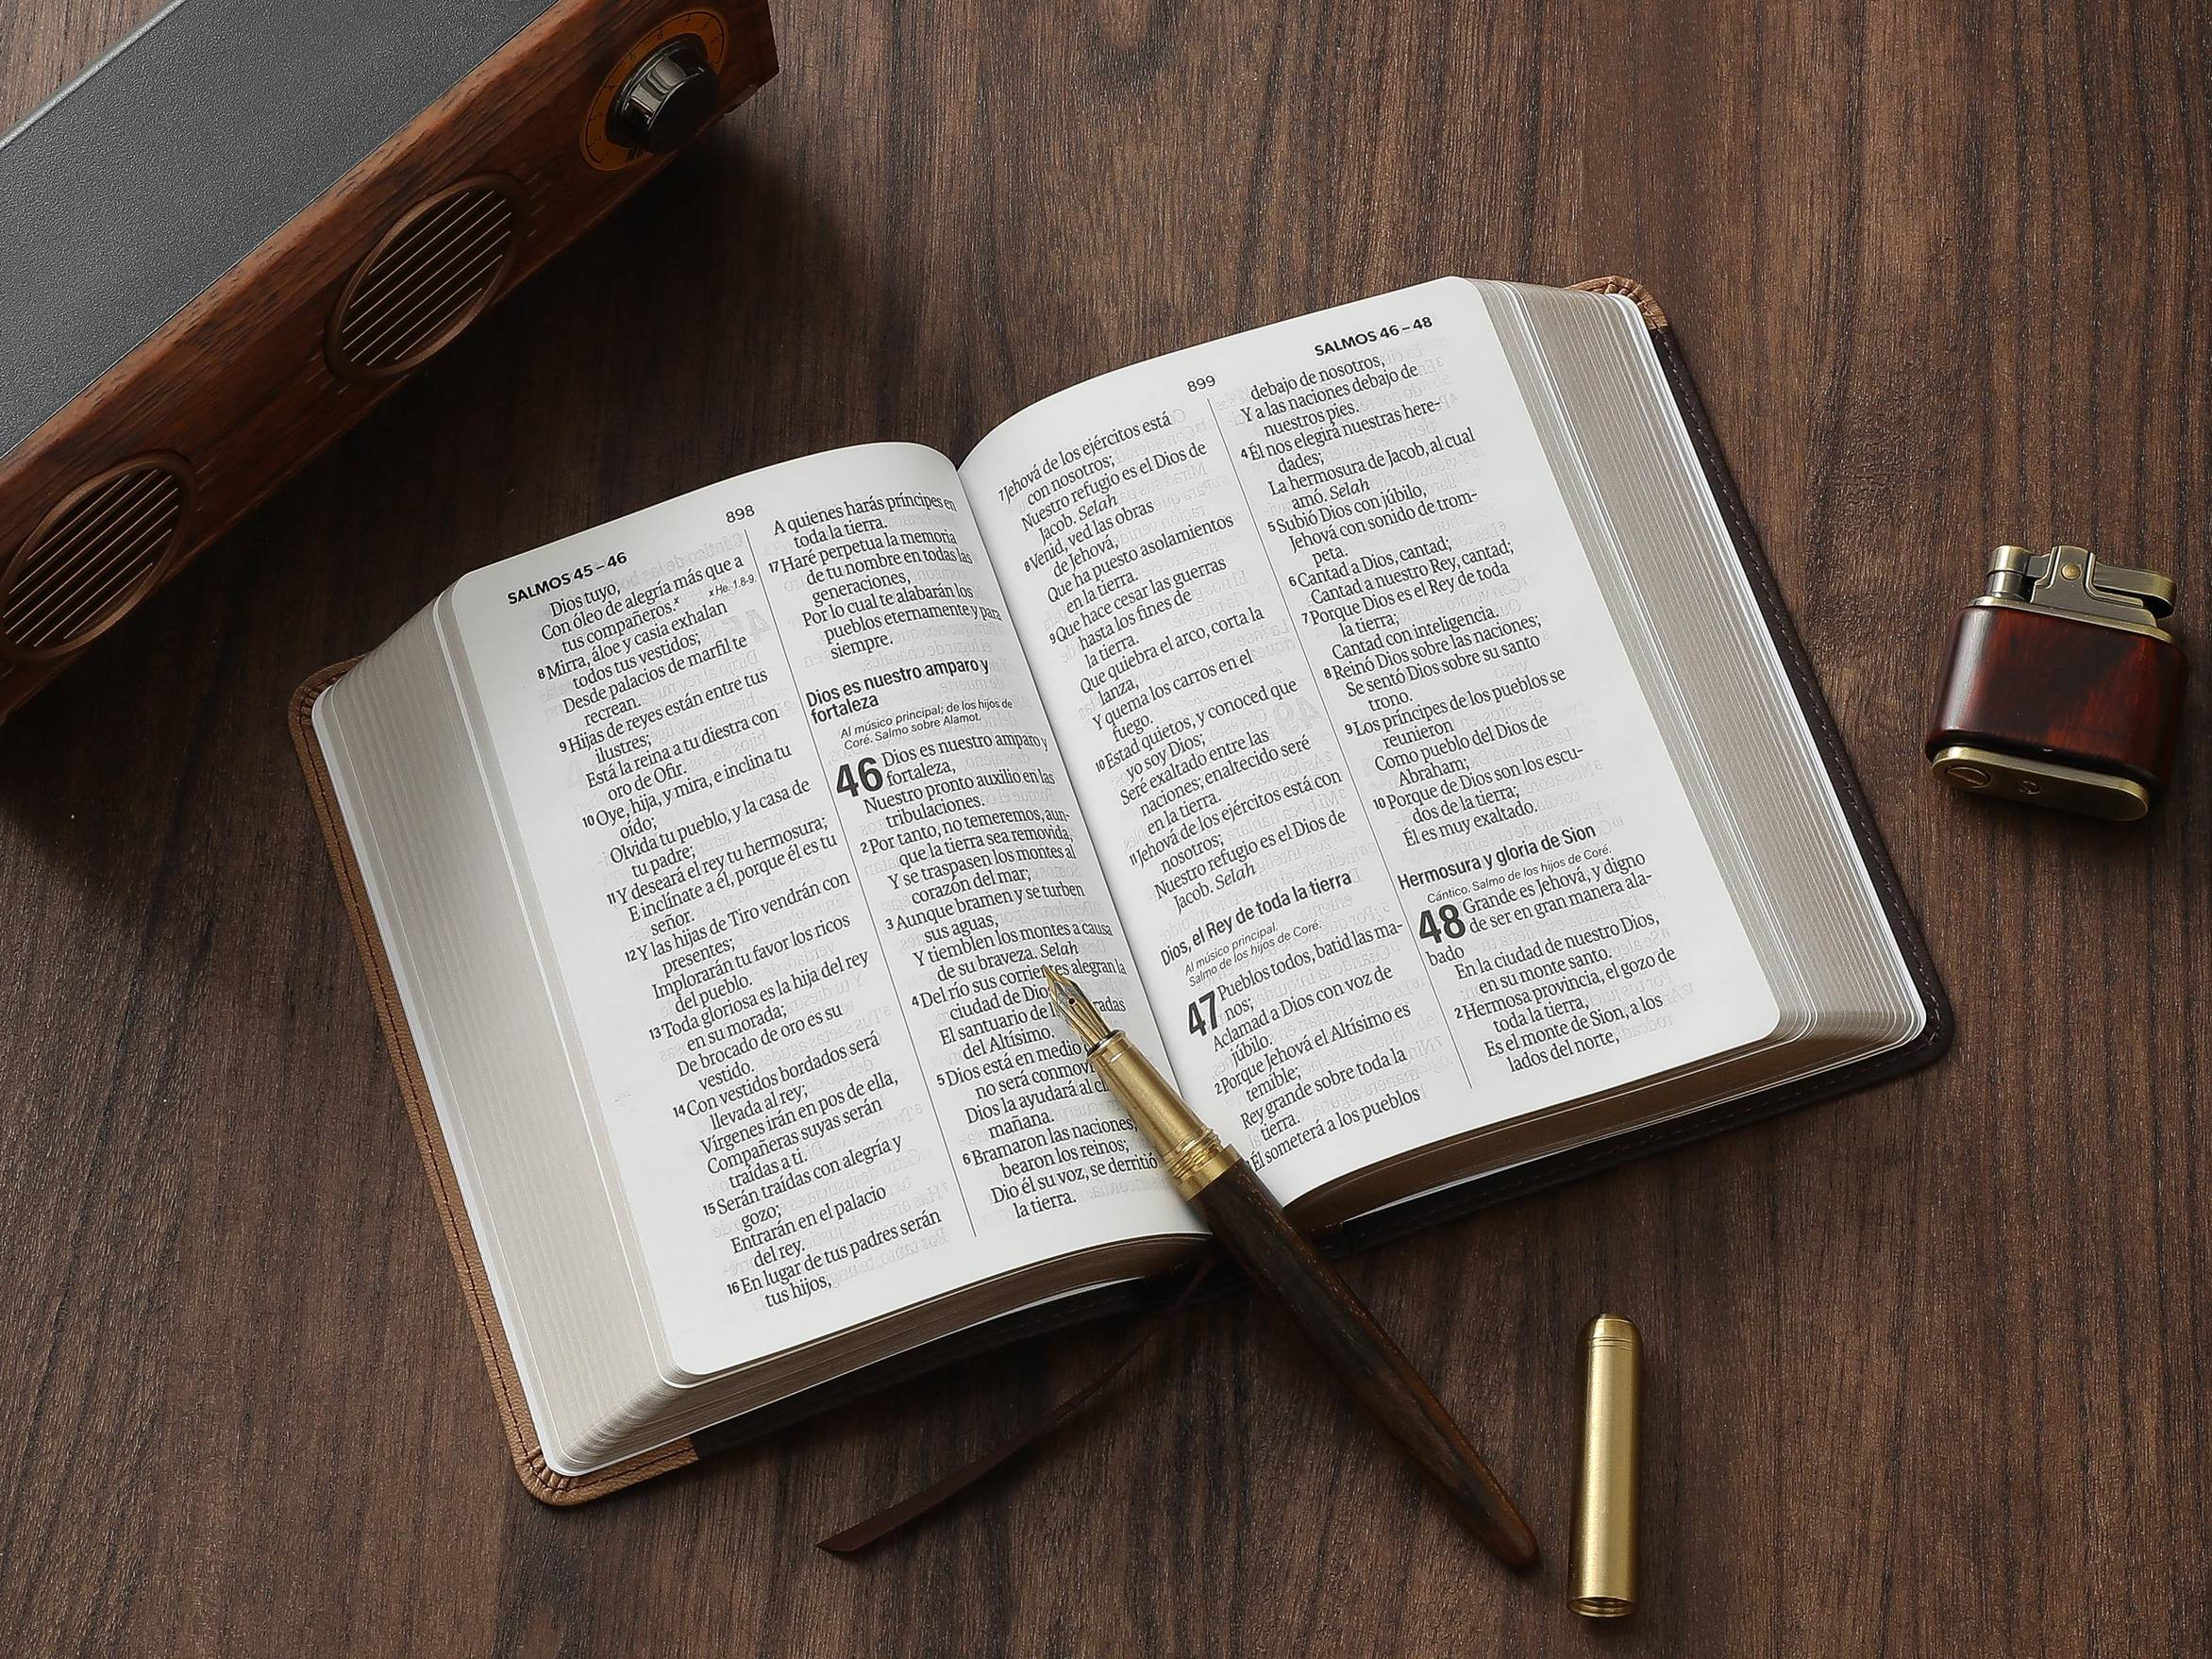 SALMOS 45–46
898
Dios tuyo,
Con óleo de alegría más que a
tus compañeros.x
x He. 1.8-9.
8 Mirra, áloe y casia exhalan
todos tus vestidos;
Desde palacios de marfil te
recrean.
9 Hijas de reyes están entre tus
ilustres;
Está la reina a tu diestra con
oro de Ofir.
10 Oye, hija, y mira, e inclina tu
oído;
Olvida tu pueblo, y la casa de
tu padre;
11 Y deseará el rey tu hermosura;
E inclínate a él, porque él es tu
señor.
12 Y las hijas de Tiro vendrán con
presentes;
Implorarán tu favor los ricos
del pueblo.
13 Toda gloriosa es la hija del rey
en su morada;
De brocado de oro es su
vestido.
14 Con vestidos bordados será
llevada al rey;
Vírgenes irán en pos de ella,
Compañeras suyas serán
traídas a ti.
15 Serán traídas con alegría y
gozo;
Entrarán en el palacio
del rey.
16 En lugar de tus padres serán
tus hijos,
A quienes harás príncipes en
toda la tierra.
17 Haré perpetua la memoria
de tu nombre en todas las
generaciones,
Por lo cual te alabarán los
pueblos eternamente y para
siempre.
Dios es nuestro amparo y
fortaleza
Al músico principal; de los hijos de
Coré. Salmo sobre Alamot.
46 Dios es nuestro amparo y
fortaleza,
Nuestro pronto auxilio en las
tribulaciones.
2 Por tanto, no temeremos, aun-
que la tierra sea removida,
Y se traspasen los montes al
corazón del mar;
3 Aunque bramen y se turben
sus aguas,
Y tiemblen los montes a causa
de su braveza. Selah
4 Del río sus corrientes alegran la
ciudad de Dios
El santuario de
del Altísimo.
5 Dios está en medio
no será
Dios la ayudará al
mañana.
6 Bramaron las naciones,
bearon los reinos;
Dio él su voz, se derritió
la tierra.
899
SALMOS 46–48
7 Jehová de los ejércitos está
con nosotros;
Nuestro refugio es el Dios de
Jacob. Selah
8 Venid, ved las obras
de Jehová,
Que ha puesto asolamientos
en la tierra.
9 Que hace cesar las guerras
hasta los fines de
la tierra.
Que quiebra el arco, corta la
lanza,
Y quema los carros en el
fuego.
10 Estad quietos, y conoced que
yo soy Dios;
Seré exaltado entre las
naciones; enaltecido seré
en la tierra.
11 Jehová de los ejércitos está con
nosotros;
Nuestro refugio es el Dios de
Jacob. Selah
Dios, el Rey de toda la tierra
Al músico principal.
Salmo de los hijos de Coré.
47 Pueblos todos, batid las ma-
nos;
Aclamad a Dios con voz de
júbilo.
2 Porque Jehová el Altísimo es
temible;
Rey grande sobre toda la
tierra.
Él someterá a los pueblos
debajo de nosotros,
Y a las naciones debajo de
nuestros pies.
4 Él nos elegirá nuestras here-
dades;
La hermosura de Jacob, al cual
amó. Selah
5 Subió Dios con júbilo,
Jehová con sonido de trom-
peta.
6 Cantad a Dios, cantad;
Cantad a nuestro Rey, cantad;
7 Porque Dios es el Rey de toda
la tierra;
Cantad con inteligencia.
8 Reinó Dios sobre las naciones;
Se sentó Dios sobre su santo
trono.
9 Los príncipes de los pueblos se
reunieron
Como pueblo del Dios de
Abraham;
10 Porque de Dios son los escu-
dos de la tierra;
Él es muy exaltado.
Hermosura y gloria de Sion
Cántico. Salmo de los hijos de Coré.
48 Grande es Jehová, y digno
de ser en gran manera ala-
bado
En la ciudad de nuestro Dios,
en su monte santo.
2 Hermosa provincia, el gozo de
toda la tierra,
Es el monte de Sion, a los
lados del norte,